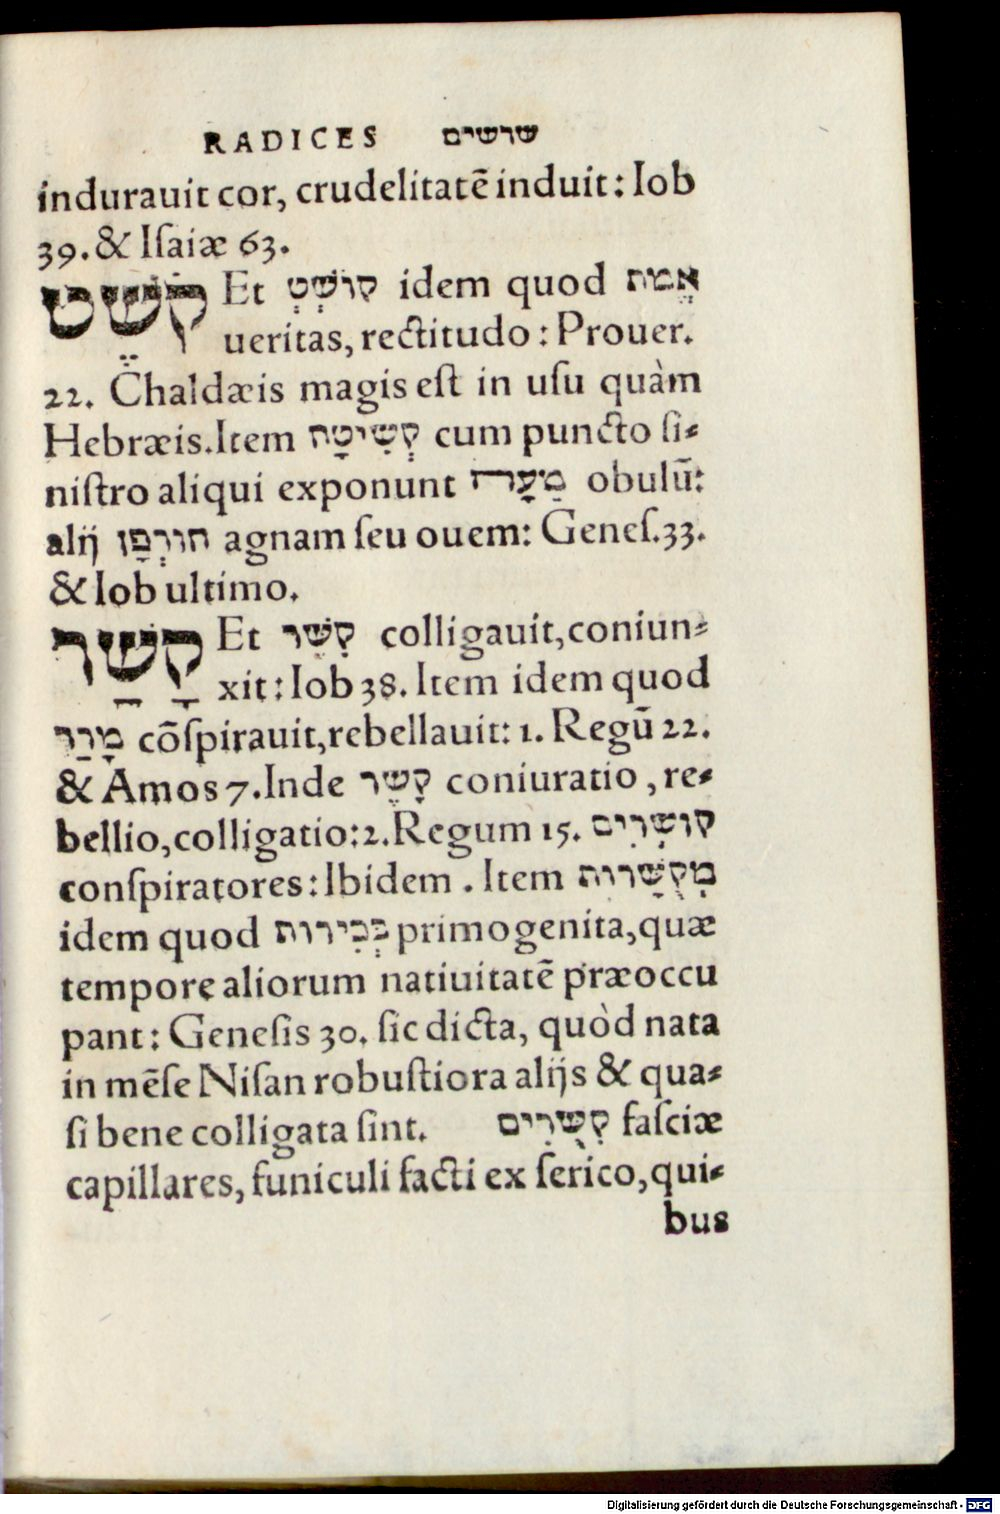 RADICES שרשים
indurauit cor, crudelitatē induit: Iob
39. & Iſaiæ 63.
קֹשֶׁט Et קוֹשְׁטְ idem quod אֱמֶת
ueritas, rectitudo: Prouer.
22. Chaldæis magis eſt in uſu quàm
Hebræis. Item קְשִׂיטָה cum puncto ſi⸗
niſtro aliqui exponunt מַעָה obulū:
alij חוּרְפָן agnam ſeu ouem: Geneſ. 33.
& Iob ultimo.
קָשַׁר Et קָשֹׁר colligauit, coniun⸗
xit: Iob 38. Item idem quod
מָרַד cōſpirauit, rebellauit: 1. Regū 22.
& Amos 7. Inde קָשֶׁר coniuratio, re⸗
bellio, colligatio: 2. Regum 15. קוֹשְׁרִים
conſpiratores: Ibidem. Item מְקֻשָּׁרוֹת
idem quod בְּכִירוֹת primogenita, quæ
tempore aliorum natiuitatē præoccu
pant: Geneſis 30. ſic dicta, quòd nata
in mēſe Niſan robuſtiora alijs & qua⸗
ſi bene colligata ſint. קִשֻּׁרִים faſciæ
capillares, funiculi facti ex ſerico, qui⸗
bus
Digitalisierung gefördert durch die Deutsche Forschungsgemeinschaft - DFG